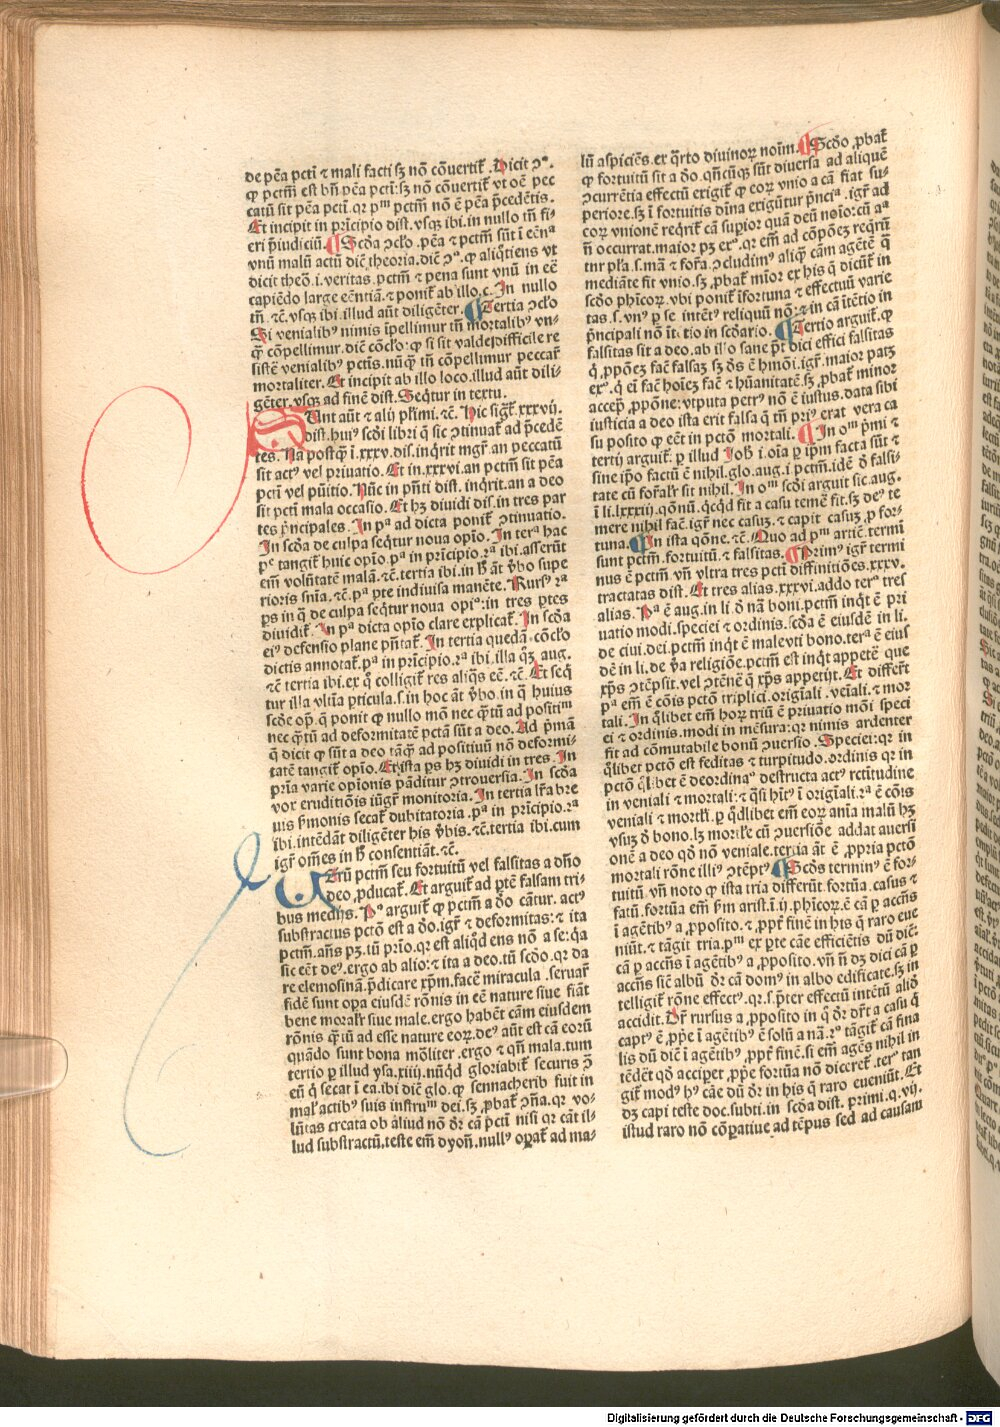 de pēa pctī ⁊ mali facti sꝫ nō cōuertit̃. Dicit ꝯᵒ.
ꝙ pctm̄ est bn̄ pēa pctī: sꝫ nō cōuertit̃ vt oē pec
catū sit pēa pctī. qꝛ pᵐ pctm̄ nō ē pēa p̄cedētis.
Et incipit in prīcipio dist. vsqꝫ ibi. in nullo tn̄ fi-
eri p̄iudiciū. ¶ Scđa ꝯclō. pēa ⁊ pctm̄ sūt ī eēna
vnū malū actū diē theoria. diē ꝯᵒ. ꝙ aliqͥtiens vt
dicit theō. i. veritas. pctm̄ ⁊ pena sunt vnū in eē
capiēdo large eēntiā. ⁊ ponit̃ ab illo. c. In nullo
tn̄. ⁊c. vsqꝫ ibi. illud aūt diligēter. ¶ Tertia ꝯclō
Si venialibꝰ nimis īpellimur tn̄ mortalibꝰ vn-
q̄ꝫ cōpellimur. diē cōclō: ꝙ si sit valde difficile re
sistē venialibꝰ pctīs. nūqͣꝫ tn̄ cōpellimur peccar̃
mortaliter. Et incipit ab illo loco. illud aūt dili-
gēter. vsqꝫ ad finē dist. Seqͥtur in textu.
Sunt aūt ⁊ alij plīmi. ⁊c. Hic sigͣt̃. xxxvij.
dist. huiꝰ scđi libri q̄ sic ꝯtinuat̃ ad p̄cedē
tes. Nā postqͣꝫ ī. xxxv. dis. inqͥrit mgr̃. an peccatū
sit actꝰ vel priuatio. Et in. xxxvi. an pctm̄ sit pēa
pctī vel pūitio. Nūc in pn̄ti dist. inqͥrit. an a deo
sit pctī mala occasio. Et hꝫ diuidi dis. in tres par
tes pͥncipales. In pᵃ ad dicta ponit̃ ꝯtinuatio.
In scđa de culpa seqͥtur noua opīo. In terᵃ hac
pᵉ tangit̃ huic opīo. pᵃ in prīcipio. 2ᵃ ibi. asserūt
em̄ volūtatē malā. ⁊c. tertia ibi. in hͦ āt ꝟbo supe
rioris snīa. ⁊c. pᵃ ꝑte indiuisa manēte. Rursꝰ 2ᵃ
ps in q̄ de culpa seqͥtur noua opiᵒ: in tres ꝑtes
diuidit̃. In pᵃ dicta opīo clare explicat̃. In scđa
eiꝰ defensio plane pn̄tat̃. In tertia quedā ꝯclō
dictis annotat̃. pᵃ in prīcipio. 2ᵃ ibi. illa qͦꝫ aug.
⁊c tertia ibi. ex qͦ colligit̃ res aliqͣs eē. ⁊c. Et seqͥ
tur illa vltīa ꝑticula. s. in hoc āt ꝟbo. in q̄ huius
scđe op̄. q̄ ponit ꝙ nullo mō nec qͣꝫtū ad positiᵐ
nec qͣꝫtū ad deformitatē pctā sūt a deo. Ad pͥmā
q̄ dicit ꝙ sūt a deo tāqͣꝫ ad positiuū nō deformi-
tatē tangit̃ opīo. Et ista ps hꝫ diuidi in tres. In
prīa varie opīonis pāditur ꝯtrouersia. In scđa
vox eruditiōis iūgit̃ monitoria. In tertia lr̃a bre
uis pͥmonis secat̃ dubitatoria. pᵃ in prīcipio. 2ᵃ
ibi. intēdāt diligēter his ꝟbis. ⁊c. tertia ibi. cum
igr̃ om̄es in hͦ consentiāt. ⁊c.
Utrū pctm̄ seu fortuitū vel falsitas a dn̄o
deo ꝓducat̃. Et arguit̃ ad ꝑtē falsam tri-
bus medijs. Pᵒ arguit̃ ꝙ pctm̄ a dō cātur. actꝰ
substractus pctō est a dō. igr̃ ⁊ deformitas: ⁊ ita
pctm̄. añs pꝫ. tū prīo. qꝛ est aliqͥd ens nō a se: qͣa
sic eēt deꝰ. ergo ab alio: ⁊ ita a deo. tū scđo. qꝛ da
re elemosinā. p̄dicare xp̄m. facē miracula. seruar̃
fidē sunt oꝑa eiusdē rōnis in eē nature siue fiāt
bene moralr̃ siue male. ergo habēt cām eiusdem
rōnis qͣꝫtū ad esse nature eoꝝ. deꝰ aūt est cā eorū
quādo sunt bona mōliter. ergo ⁊ qn̄ mala. tum
tertio ꝑ illud ysa. xiij. nūqͥd gloriabit̃ securis ꝯͣ
eū qͥ secat ī ea. ibi diē glo. ꝙ sennacherib fuit in
malꝰ actibꝰ suis instruᵐ dei. sꝫ ꝓbat̃ ꝯn̄a. qꝛ vo-
lūtas creata ob aliud nō dr̄ cā pctī nisi qꝛ cāt il-
lud substractū. teste em̄ dyon̄. nullꝰ oꝑat̃ ad ma-
lū aspiciēs. ex qͣrto diuinoꝝ noīm. ¶ Scđo ꝓbat̃
ꝙ fortuitū sit a dō. qn̄cūqꝫ sūt diuersa ad aliquē
ꝯcurrētia effectū exigit̃ ꝙ eoꝝ vnio a cā fiat su-
periore. sꝫ ī fortuitis dīna exigūtur p̄nciᵃ. igr̃ ad
eoꝝ vnionē reqͥrit̃ cā supior quā deū noīo: cū aᵃ
n̄ occurrat. maior pꝫ exᵒ. qꝛ em̄ ad cōpōeꝫ reqͥrū
tur pl̄a. s. mā ⁊ forᵃ. ꝯcludimꝰ aliqͣꝫ cām agētē qͣ
mediāte fit vnio. sꝫ ꝓbat̃ mīor ex his q̄ dicūt̃ in
scđo phīcoꝝ. vbi ponit̃ īfortuna ⁊ effectuū varie
tas. s. vnꝰ ꝑ se intētꝰ reliquū nō: ⁊ in cā ītētio in
p̄ncipali nō ītētio in scđario. ¶ Tertio arguit̃. ꝙ
falsitas sit a deo. ab illo sane pᵗ dici effici falsitas
q̄ ꝓpōeꝫ facͭ falsaꝫ sꝫ dꝰs ē hmōi. igr̃. maior patꝫ
exᵒ. qͥ eī facͭ hoīeꝫ facͭ ⁊ hūanitatē. sꝫ ꝓbat̃ minor
acceꝑ ꝓpōne: vtputa petrꝰ nō ē iustus. data sibi
iusticia a deo ista erit falsa q̄ tn̄ priꝰ erat vera ca
su posito ꝙ eēt in pctō mortali. ¶ In oᵐ pͥmi ⁊
tertij arguit̃. ꝑ illud Joh̄ i. oīa ꝑ ip̄m facta sūt ⁊
sine ip̄o factū ē nihil. glo. aug. i. pctm̄. idē ō falsi-
tate cū formalr̃ sit nihil. In oᵐ scđi arguit sic. aug.
ī li. lxxxiij. qōnū. qͥcqͥd fit a casu temē fit. sꝫ deꝰ te
mere nihil facͭ. igr̃ nec casuꝫ. ⁊ capit̃ casuꝫ ꝓ for-
tuna. ¶ In ista qōne. ⁊c. Quo ad pᵐ articͭē. termī
sunt pctm̄. fortuitū. ⁊ falsitas. ¶ Primꝰ igr̃ termi
nus ē pctm̄. vn̄ vltra tres pctī diffinitiōes. xxxv.
tractatas dist. Et tres alias. xxxvi. addo terᵃ tres
alias. Pᵃ ē aug. in li. ō nā boni. pctm̄ inqͥt ē pri
uatio modi. speciei ⁊ ordinis. scđa ē eiusdē in li.
de ciui. dei. pctm̄ inqͥt ē maleuti bono. terᵃ ē eius
dē in li. de ꝟa religiōe. pctm̄ est inqͥt appetē que
xp̄s ꝯtēpsit. vel ꝯtēnē q̄ xp̄s appetijt. Et differt̃
pᵃ em̄ ē cōis pctō triplici. origīali. veīali. ⁊ mor
tali. In qͣlibet em̄ hoꝝ triū ē priuatio mōi speci
ei ⁊ ordinis. modi in mēsura: qꝛ nimis ardenter
fit ad cōmutabile bonū ꝯuersio. Speciei: qꝛ in
qͣlibet pctō est feditas ⁊ turpitudo. ordinis qꝛ in
pctō qͣlibet ē deordinaᵒ destructa actꝰ retitudine
in veniali ⁊ mortali: ⁊ qͣsi hītꝰ ī origīali. 2ᵃ ē cōis
veniali ⁊ mortl̃i. ꝑ qͣdlibet em̄ eorꝝ aīa malū hꝫ
vsuꝫ ō bono. lꝫ mortl̃e cū ꝯuersiōe addat auersi
onē a deo qd̄ nō veniale. tertia āt ē ꝓpria pctō
mortali rōne illiꝰ ꝯtēptꝰ. ¶ Scđs terminꝰ ē for-
tuitū. vn̄ noto ꝙ ista tria differūt. fortūa. casus ⁊
fatū. fortūa em̄ ẜm arist. ī. ij. phīcoꝝ. ē cā ꝑ accn̄s
ī agētibꝰ a ꝓposito. ⁊ ꝓpr̃ finē in his q̄ raro eue
niūt. ⁊ tāgit tria. pᵐ ex ꝑte cāe efficiētis dū diē:
cā ꝑ accn̄s ī agētibꝰ a ꝓposito. vn̄ n̄ dꝫ dici cā ꝑ
accn̄s sicͭ albū dr̄ cā domꝰ in albo edificate. sꝫ in
telligit̃ rōne effectꝰ. qꝛ. s. p̄ter effectū intētū aliō
accidit. Dr̄ rursus a ꝓposito in qͦ dr̄ dr̄t a casu qͥ
captꝰ ē ꝓpe ī agētibꝰ ē solū a nā. 2ᵒ tāgit̃ cā fina
lis dū diē ī agētibꝰ ꝓpr̃ finē. si em̄ agēs nihil in
tēdēt qd̄ accipet. ꝓpe fortūa nō dicerēt̃. terᵒ tan
git̃ modꝰ hꝰ cāe dū dr̄ in his q̄ raro eueniūt. Et
dꝫ capi teste doc. subti. in scđa dist. primi. q. vij.
istud raro nō cōꝑatiue ad tēpus sed ad causam
Digitalisierung gefördert durch die Deutsche Forschungsgemeinschaft - DFG